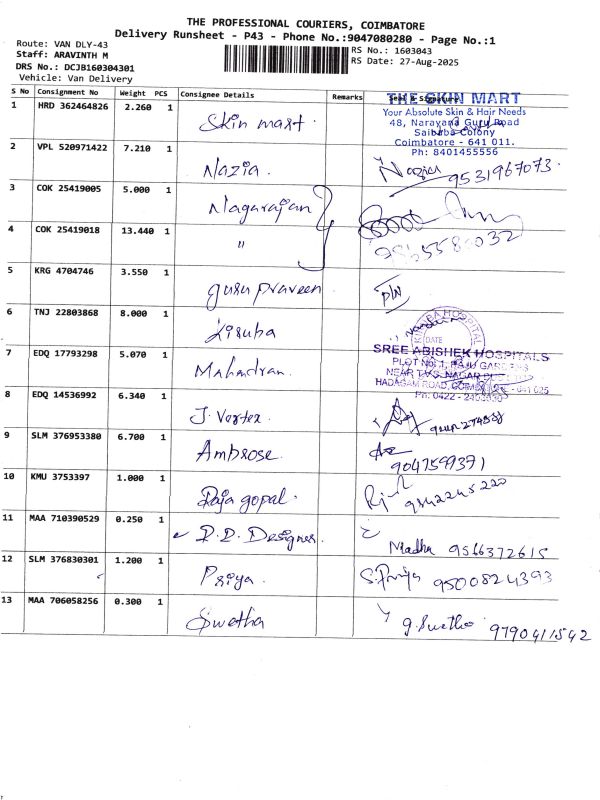 THE PROFESSIONAL COURIERS, COIMBATORE
Delivery Runsheet - P43 - Phone No.:9047080280 - Page No.:1
Route: VAN DLY-43
Staff: ARAVINTH M
DRS No.: DCJB160304301
Vehicle: Van Delivery
RS No.: 1603043
RS Date: 27-Aug-2025
S No Consignment No Weight PCS Consignee Details Remarks Seal & Signature
1 HRD 362464826 2.260 1 Skin mart.
THE SKIN MART
Your Absolute Skin & Hair Needs
48, Narayana Guru Road
Saibaba Colony
Coimbatore - 641 011.
Ph: 8401455556
2 VPL 520971422 7.210 1 Nazia. Nazia 9531967073.
3 COK 25419005 5.000 1 Nagarajan
4 COK 25419018 13.440 1 "
5 KRG 4704746 3.550 1 guru praveen
6 TNJ 22803868 8.000 1
HOSPITAL
DATE
SREE ABISHEK HOSPITALS
PLOT NO.1, RAJU GARDENS
NEAR T.V.S. NAGAR
HADAGAM ROAD, COIMBATORE - 641 025
7 EDQ 17793298 5.070 1 Mahendran.
Ph: 0422 -
8 EDQ 14536992 6.340 1 J. Vortex.
9 SLM 376953380 6.700 1 Ambrose.
10 KMU 3753397 1.000 1 Raja gopal. 9842245220
11 MAA 710390529 0.250 1 D.D. Designer. Madha 9566372615
12 SLM 376830301 1.200 1 Priya. S. Priya 9500824393
13 MAA 706058256 0.300 1 Swetha g. Swetha 9790411542